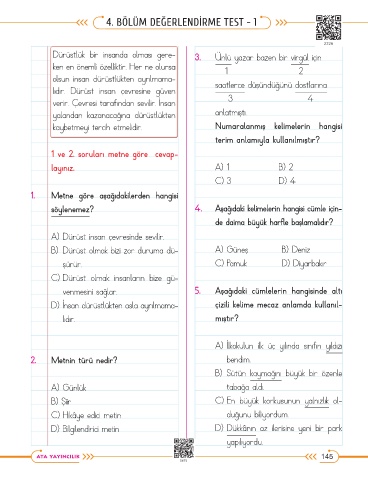 4. BÖLÜM DEĞERLENDİRME TEST - 1
Dürüstlük bir insanda olması gere-
ken en önemli özelliktir. Her ne olursa
olsun insan dürüstlükten ayrılmama-
lıdır. Dürüst insan çevresine güven
verir. Çevresi tarafından sevilir. İnsan
yalandan kazanacağına dürüstlükten
kaybetmeyi tercih etmelidir.
1 ve 2. soruları metne göre cevap-
layınız.
1. Metne göre aşağıdakilerden hangisi
söylenemez?
A) Dürüst insan çevresinde sevilir.
B) Dürüst olmak bizi zor duruma dü-
şürür.
C) Dürüst olmak insanların bize gü-
venmesini sağlar.
D) İnsan dürüstlükten asla ayrılmama-
lıdır.
2. Metnin türü nedir?
A) Günlük
B) Şiir
C) Hikâye edici metin
D) Bilgilendirici metin
3. Ünlü yazar bazen bir virgül için
1 2
saatlerce düşündüğünü dostlarına
3 4
anlatmıştı.
Numaralanmış kelimelerin hangisi
terim anlamıyla kullanılmıştır?
A) 1 B) 2
C) 3 D) 4
4. Aşağıdaki kelimelerin hangisi cümle için-
de daima büyük harfle başlamalıdır?
A) Güneş B) Deniz
C) Pamuk D) Diyarbakır
5. Aşağıdaki cümlelerin hangisinde altı
çizili kelime mecaz anlamda kullanıl-
mıştır?
A) İlkokulun ilk üç yılında sınıfın yıldızı
bendim.
B) Sütün kaymağını büyük bir özenle
tabağa aldı.
C) En büyük korkusunun yalnızlık ol-
duğunu biliyordum.
D) Dükkânın az ilerisine yeni bir park
yapılıyordu.
ATA YAYINCILIK
145